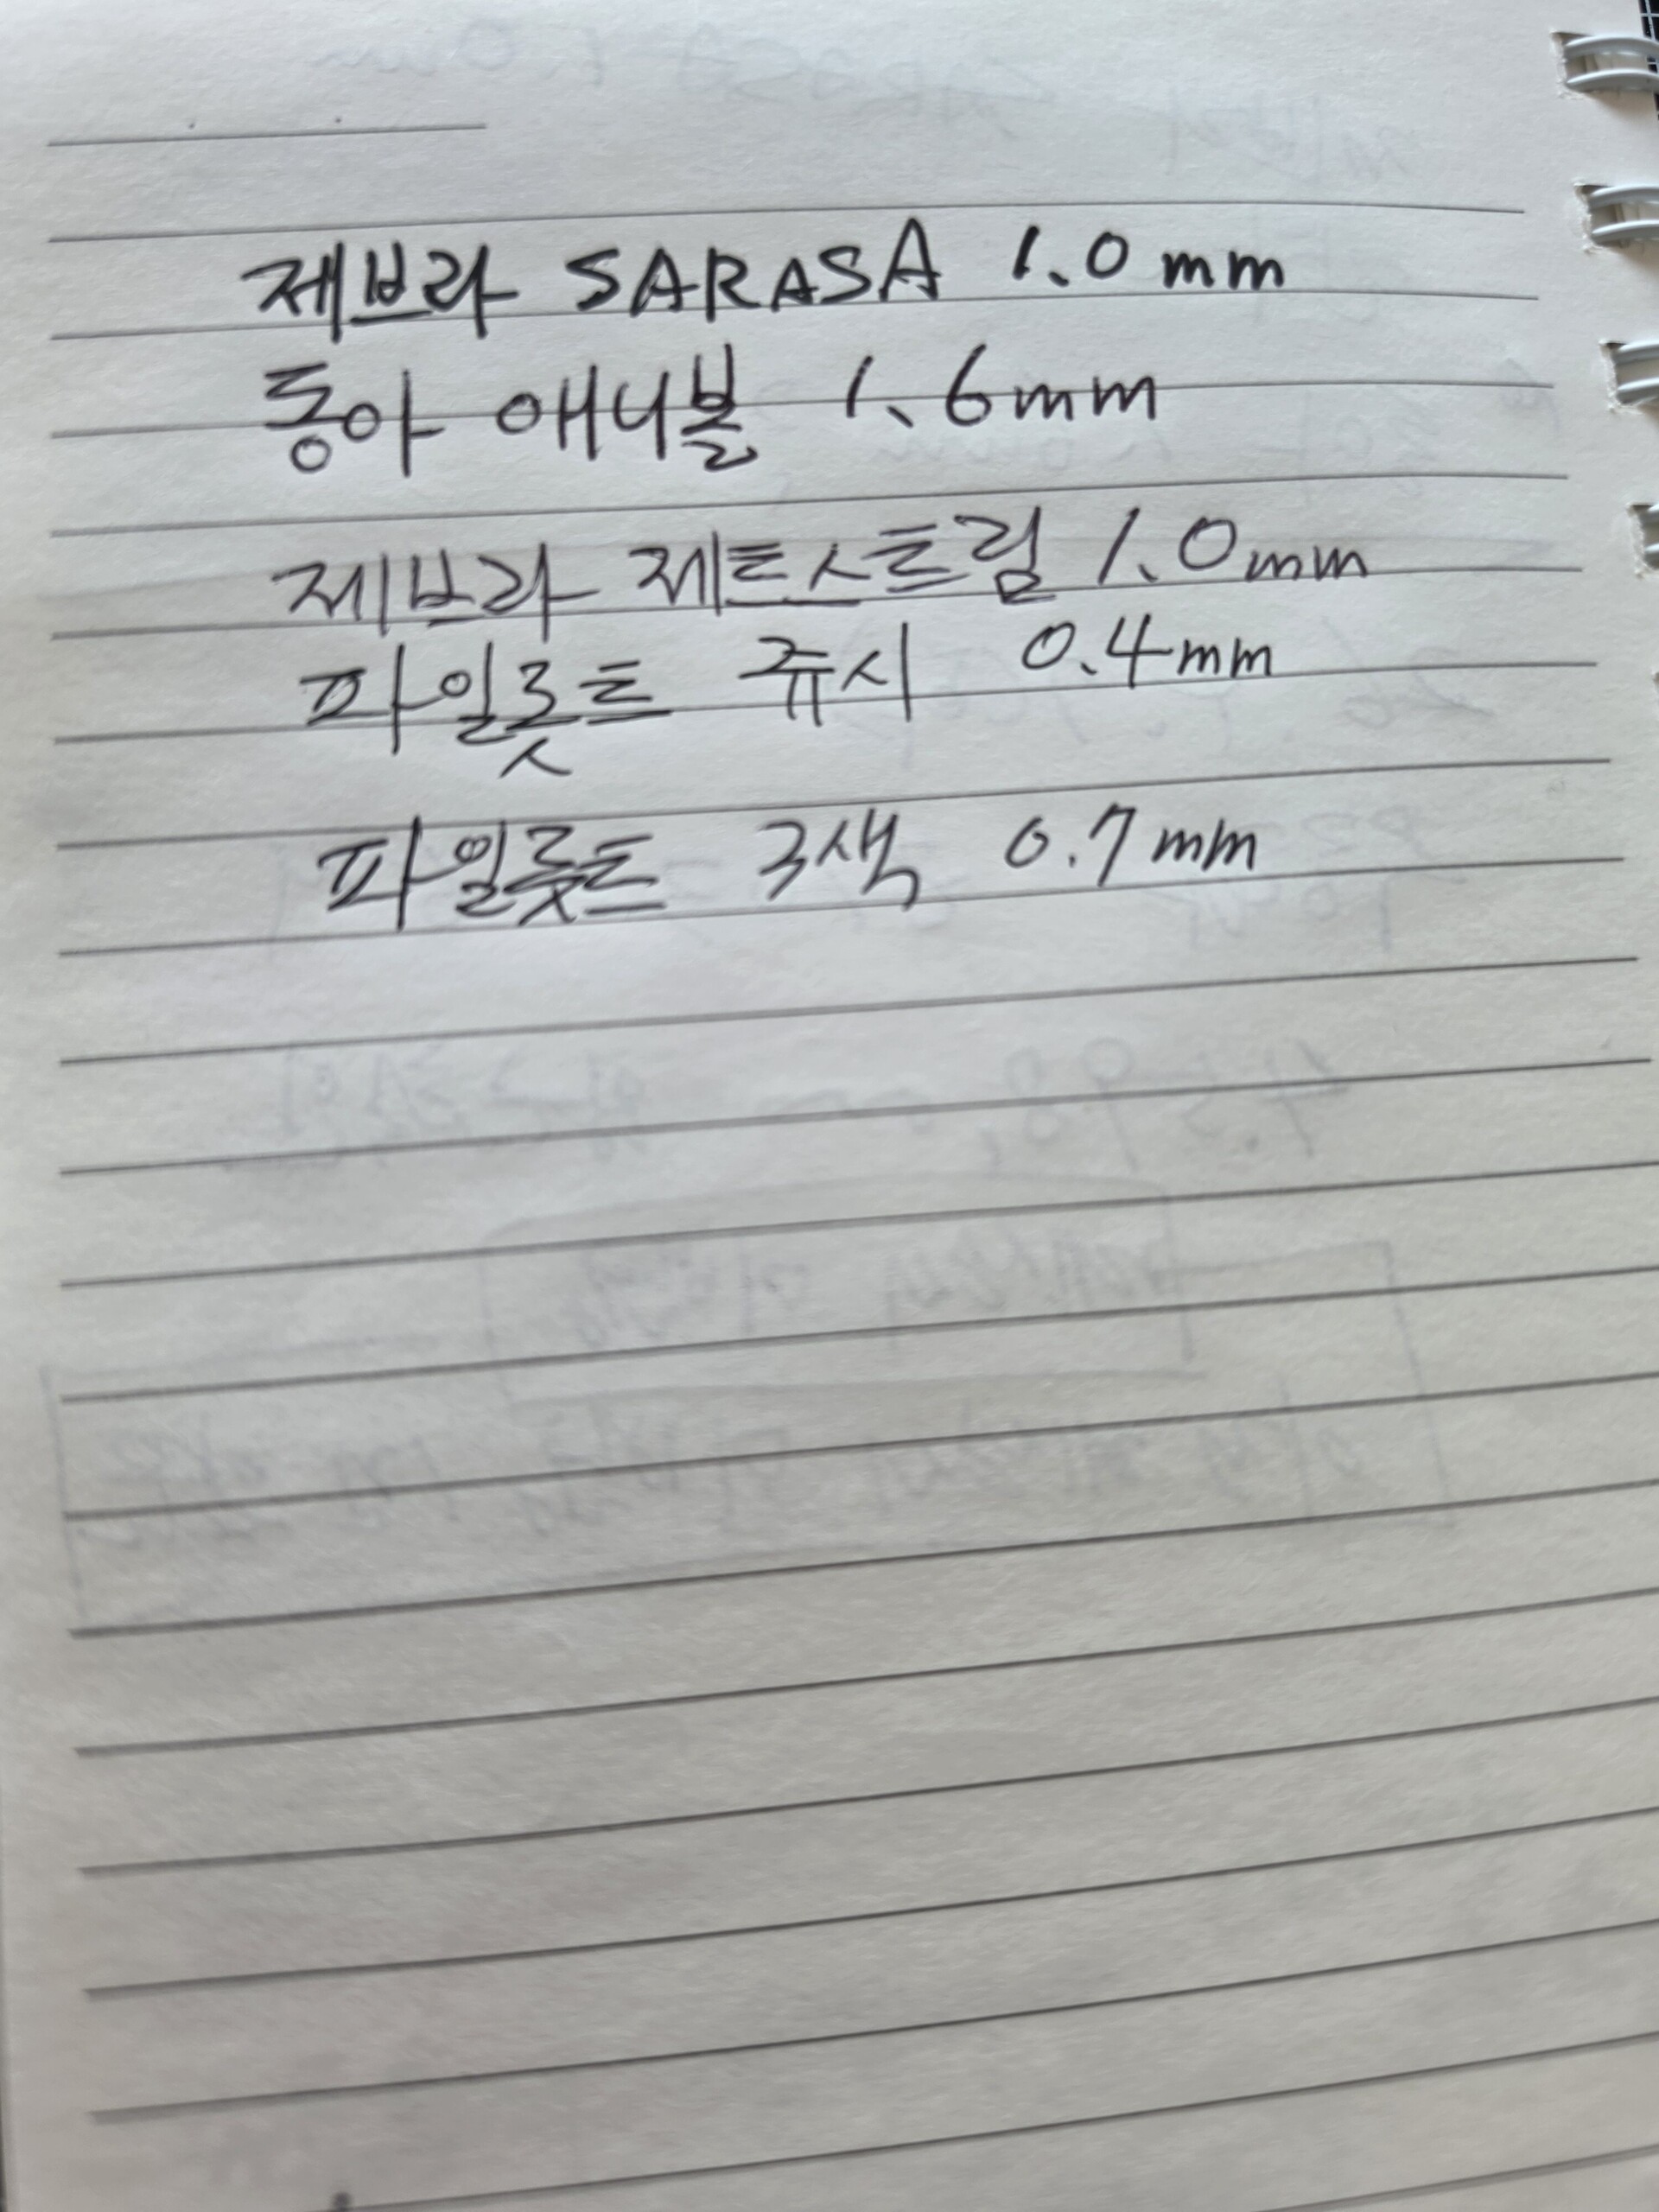 제브라 SARASA 1.0mm
동아 애니볼 1.6mm
제브라 제트스트림 1.0mm
파일롯트 쥬시 0.4mm
파일롯트 3색 0.7mm